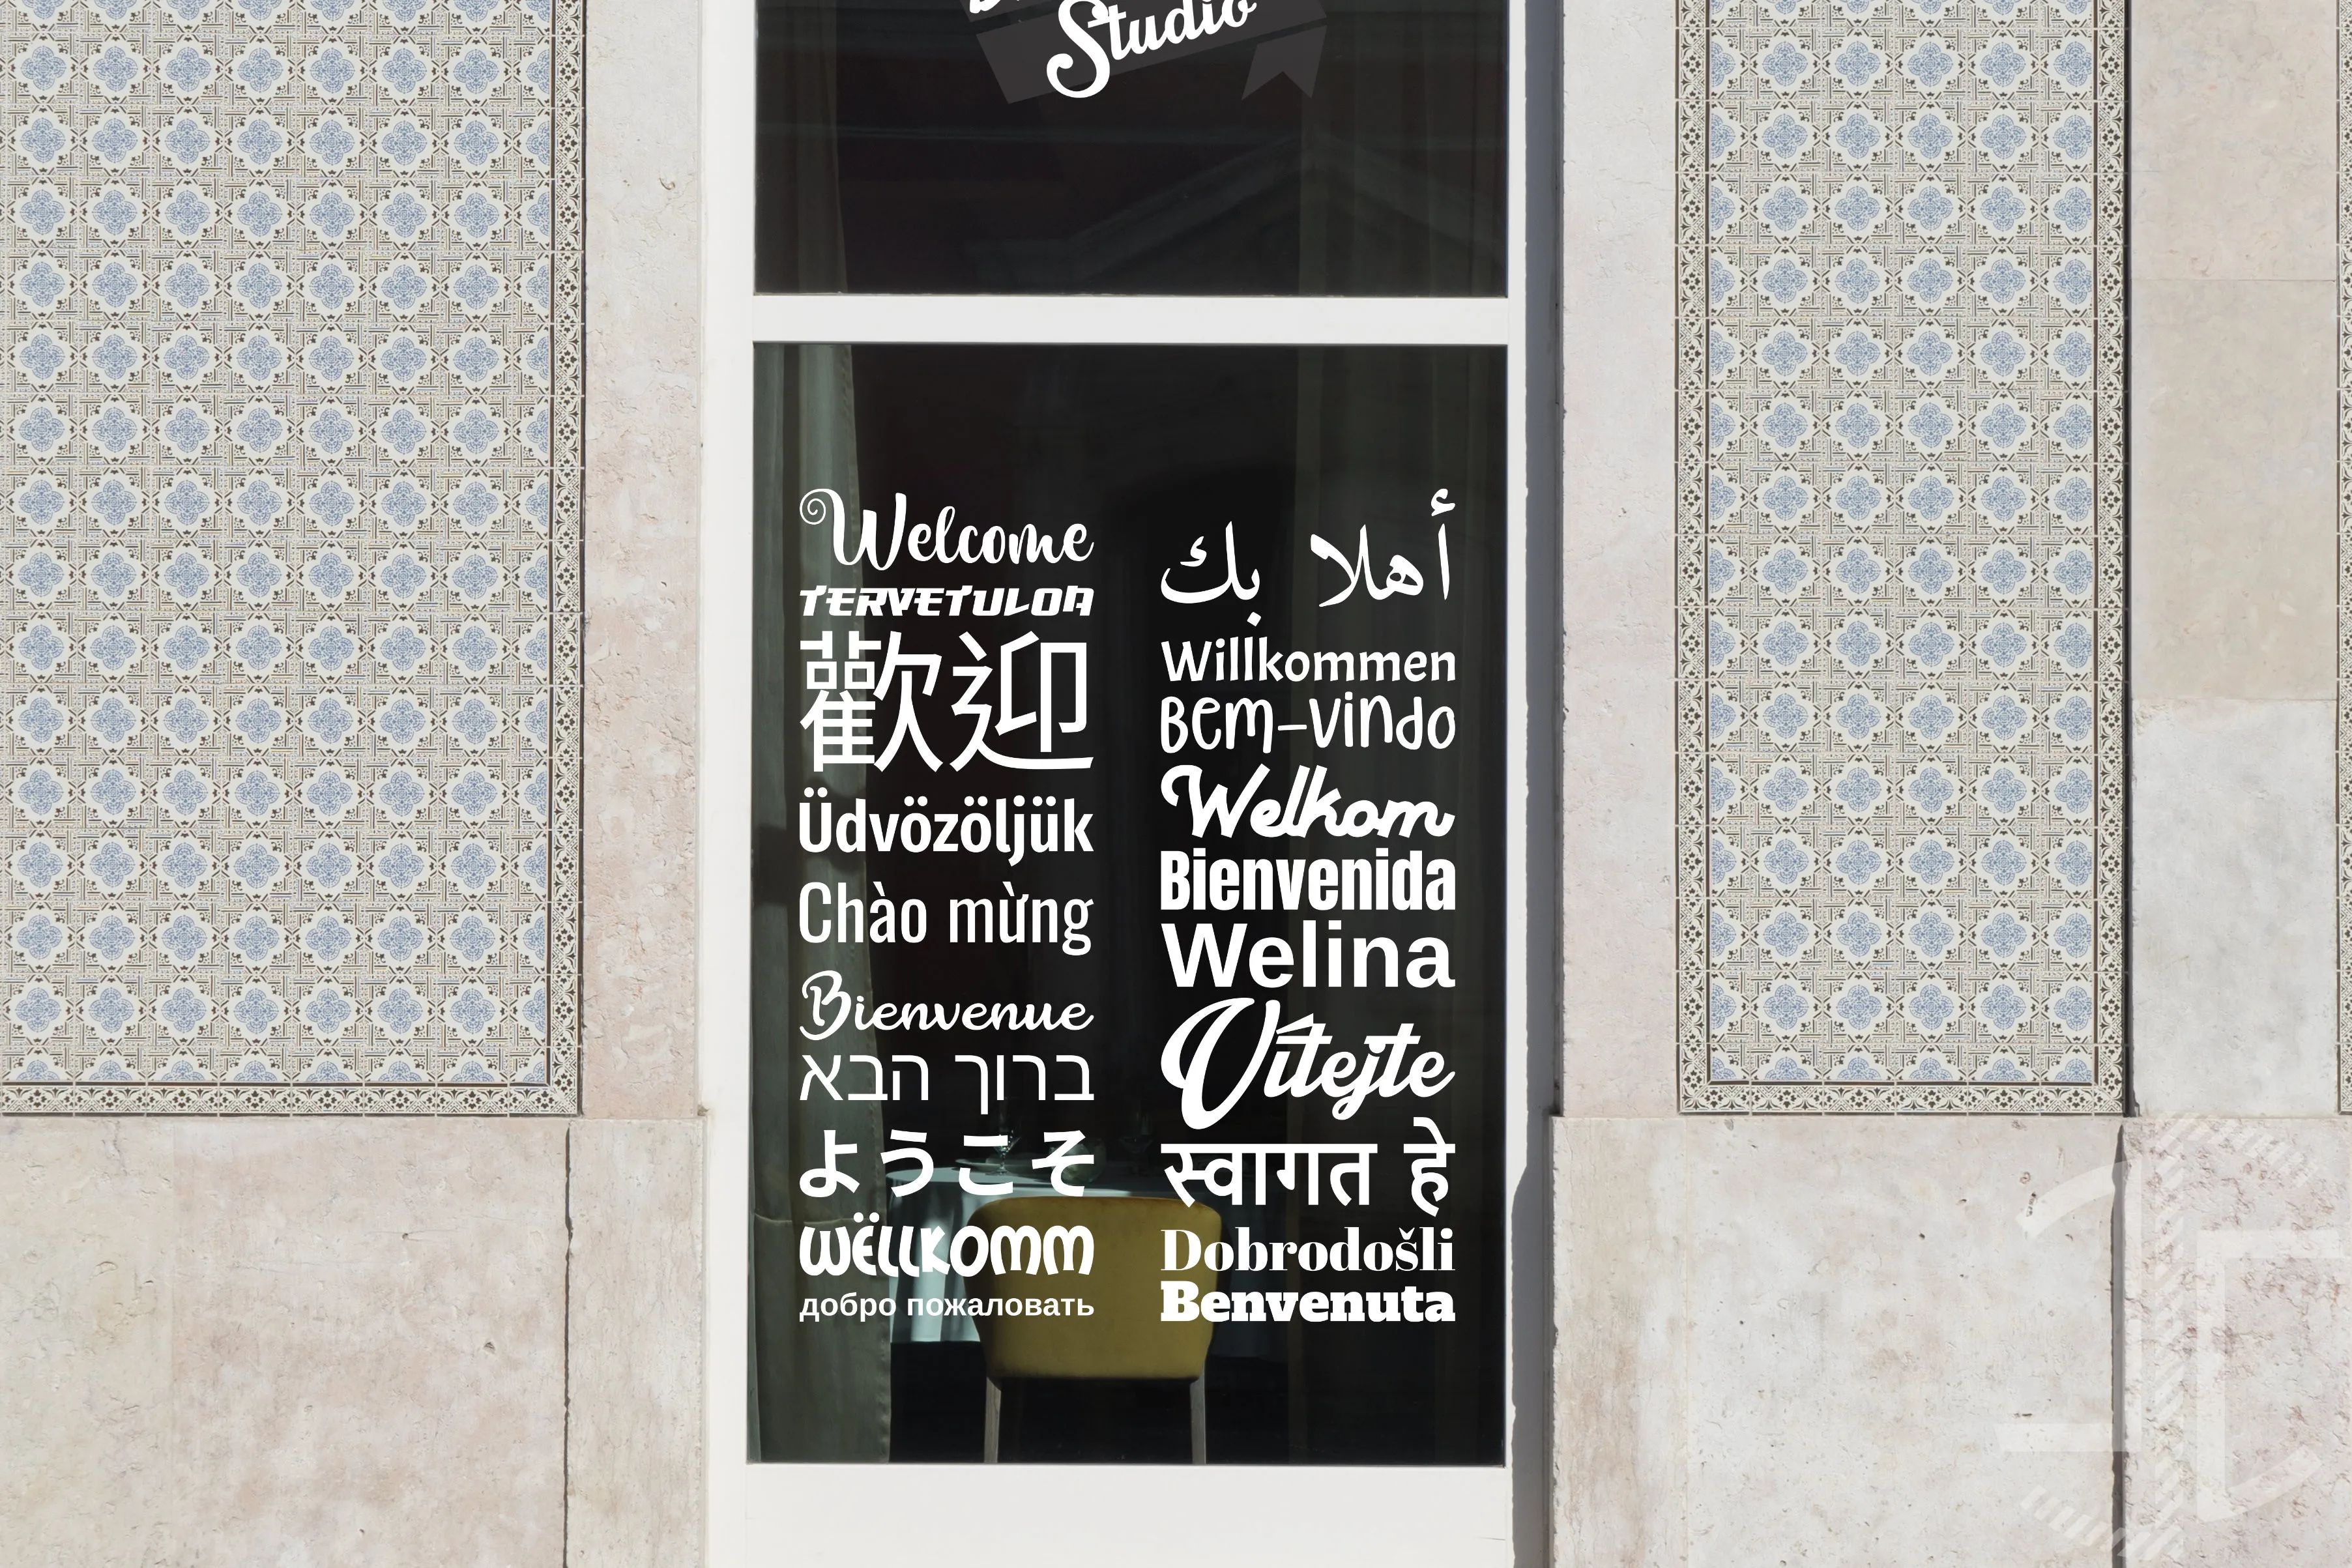 Studio
Welcome
TERVETULOA
歡迎
Üdvözöljük
Chào mừng
Bienvenue
ברוך הבא
ようこそ
Wëllkomm
добро пожаловать
أهلا بك
Willkommen
Bem-vindo
Welkom
Bienvenida
Welina
Vítejte
स्वागत हे
Dobrodošli
Benvenuta